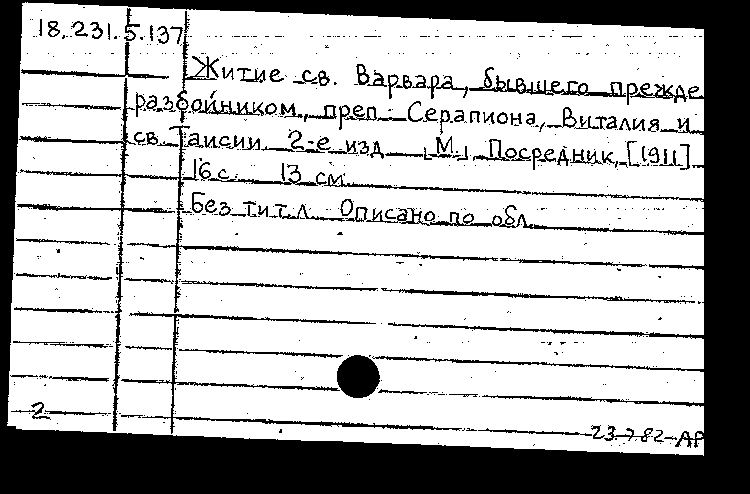 18.231.5.137
Житие св. Варвара, бывшего прежде
разбойником, преп. Серапиона, Виталия и
св. Таисии. 2-е изд. М., Посредник, [1911]
16 с. 13 см.
Без тит. л. Описано по обл.
2
23.782-АР